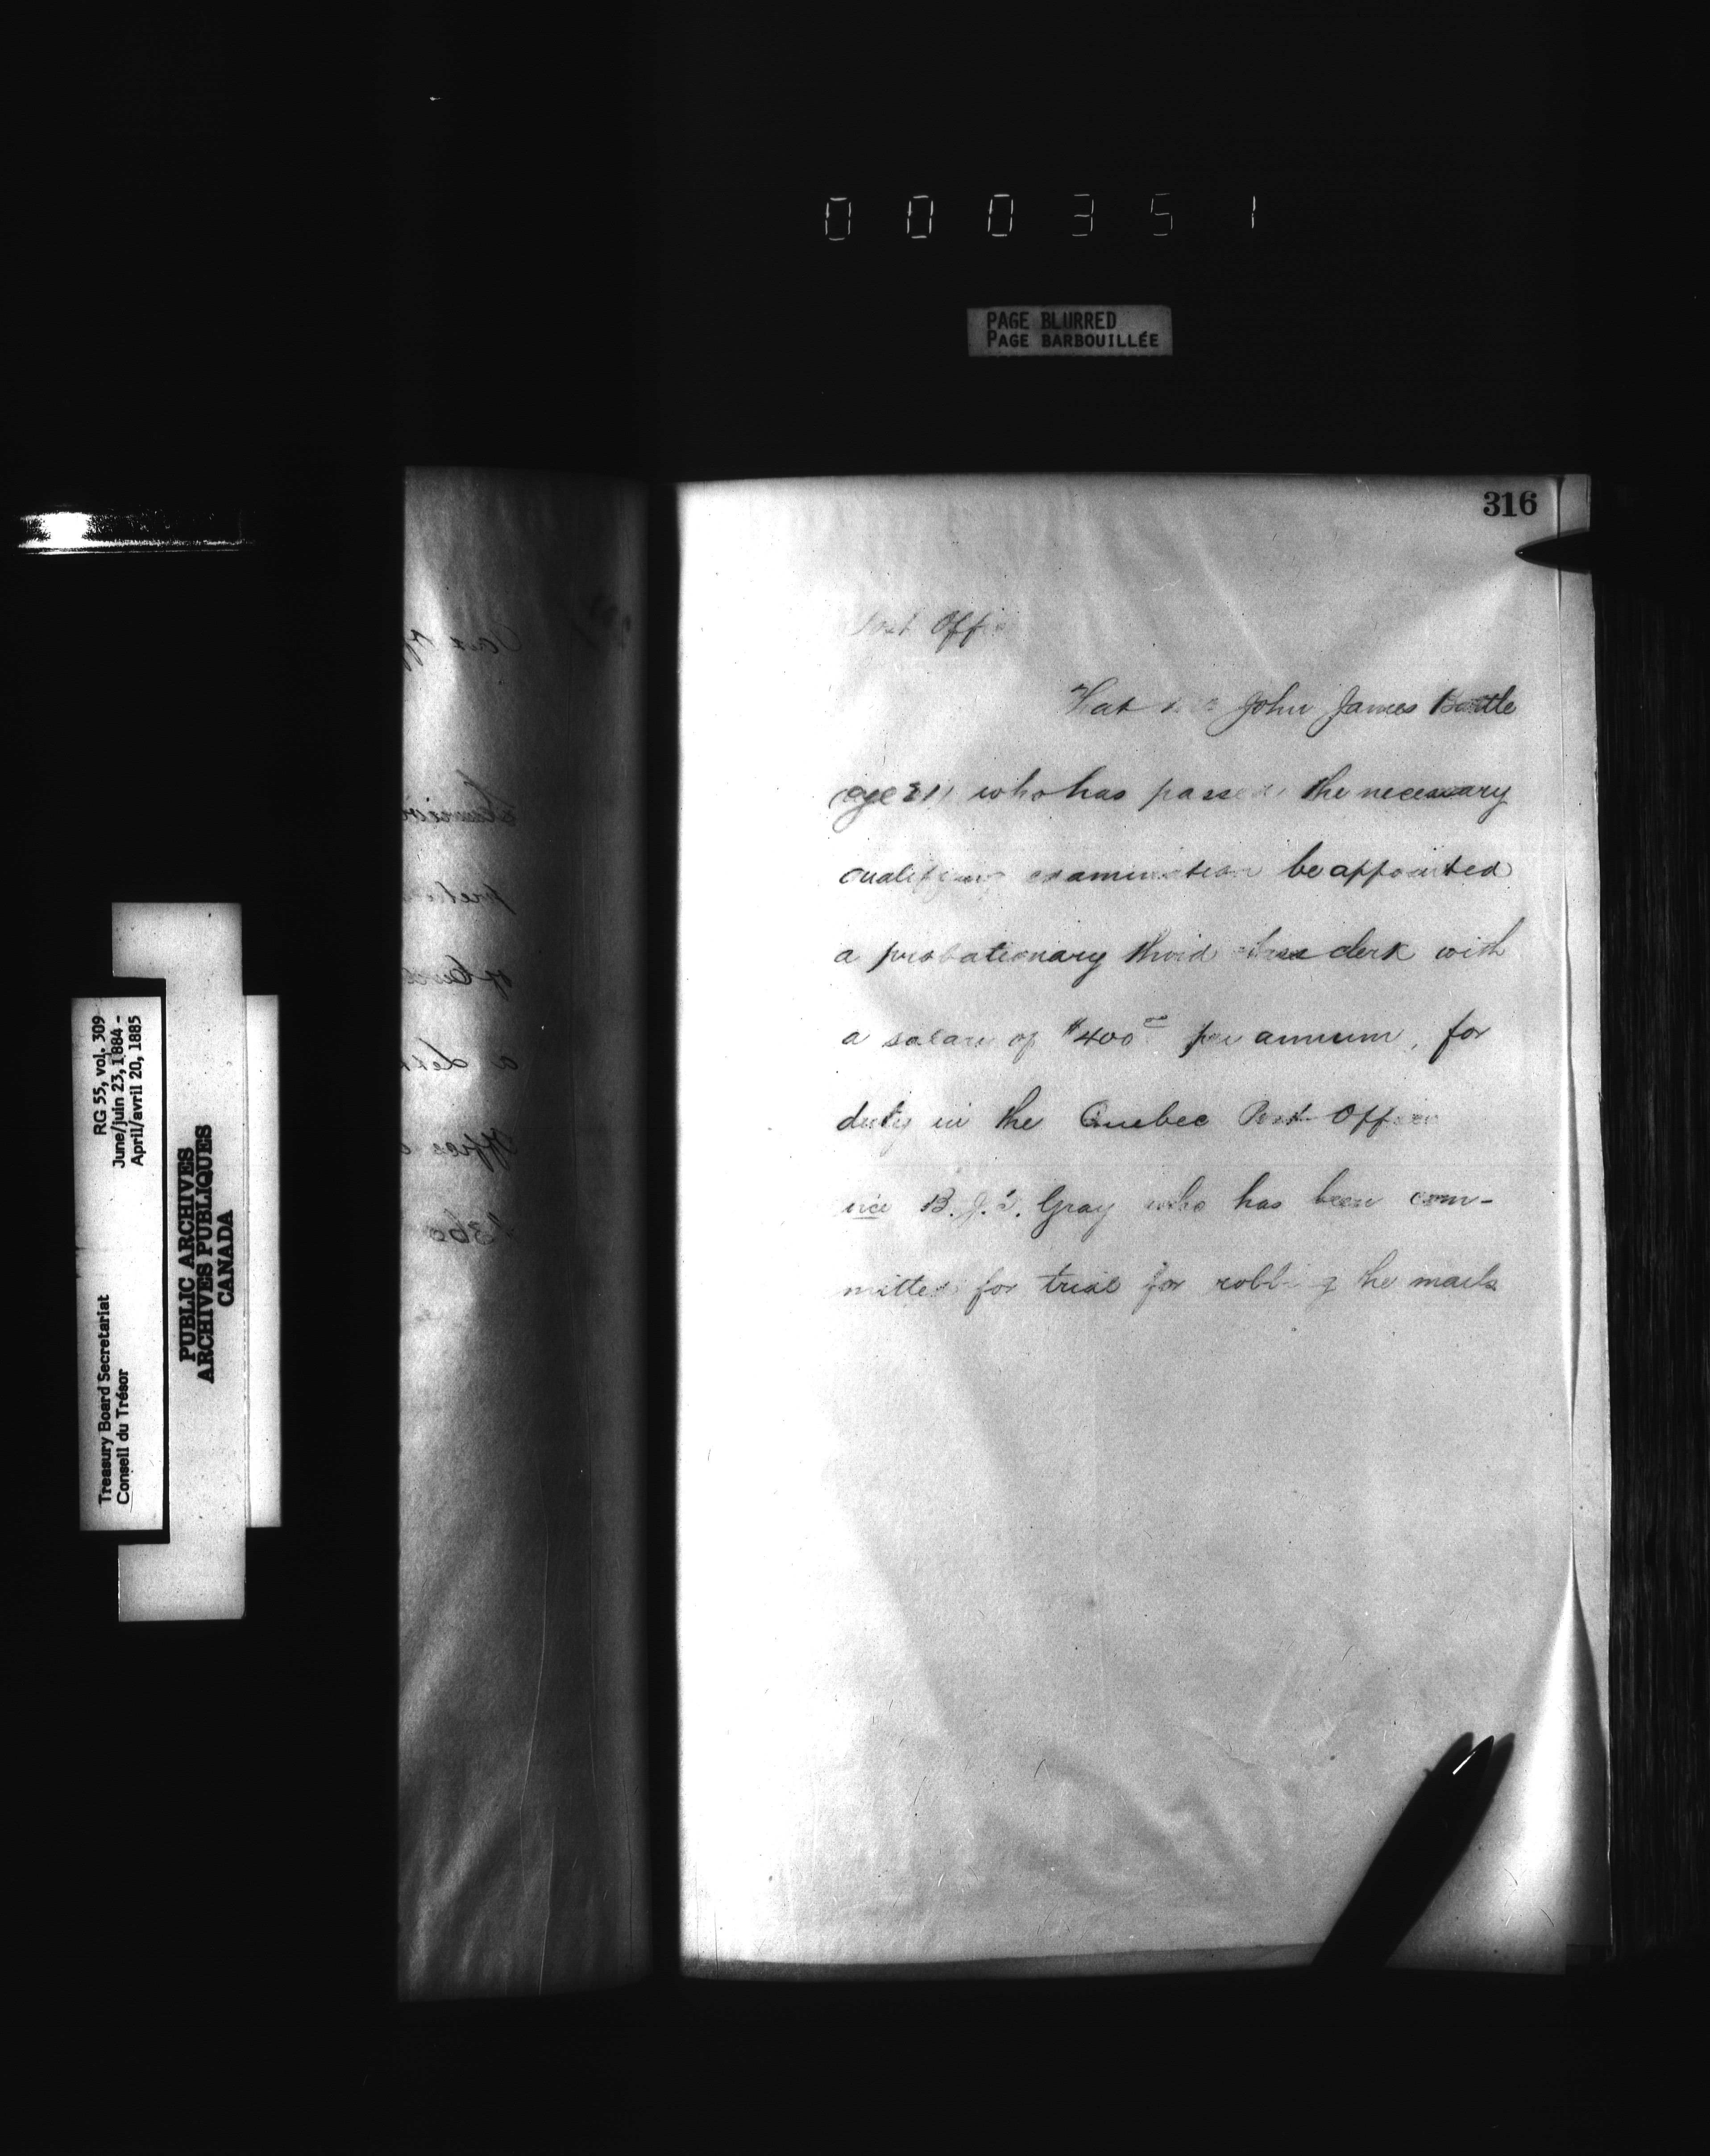 000351
PAGE BLURRED
PAGE BARBOUILLÉE
316
Post Offi
That John James Battle
(age 21) who has passed the necessary
qualifying examination be appointed
a probationary third class clerk with
a salary of $400 00 per annum, for
duty in the Quebec Post Office
vice B. J. Gray who has been com-
mitted for trial for robbing the mails
RG 55, vol. 309
June/juin 23, 1884 -
April/avril 20, 1885
Treasury Board Secretariat
Conseil du Trésor
PUBLIC ARCHIVES
ARCHIVES PUBLIQUES
CANADA